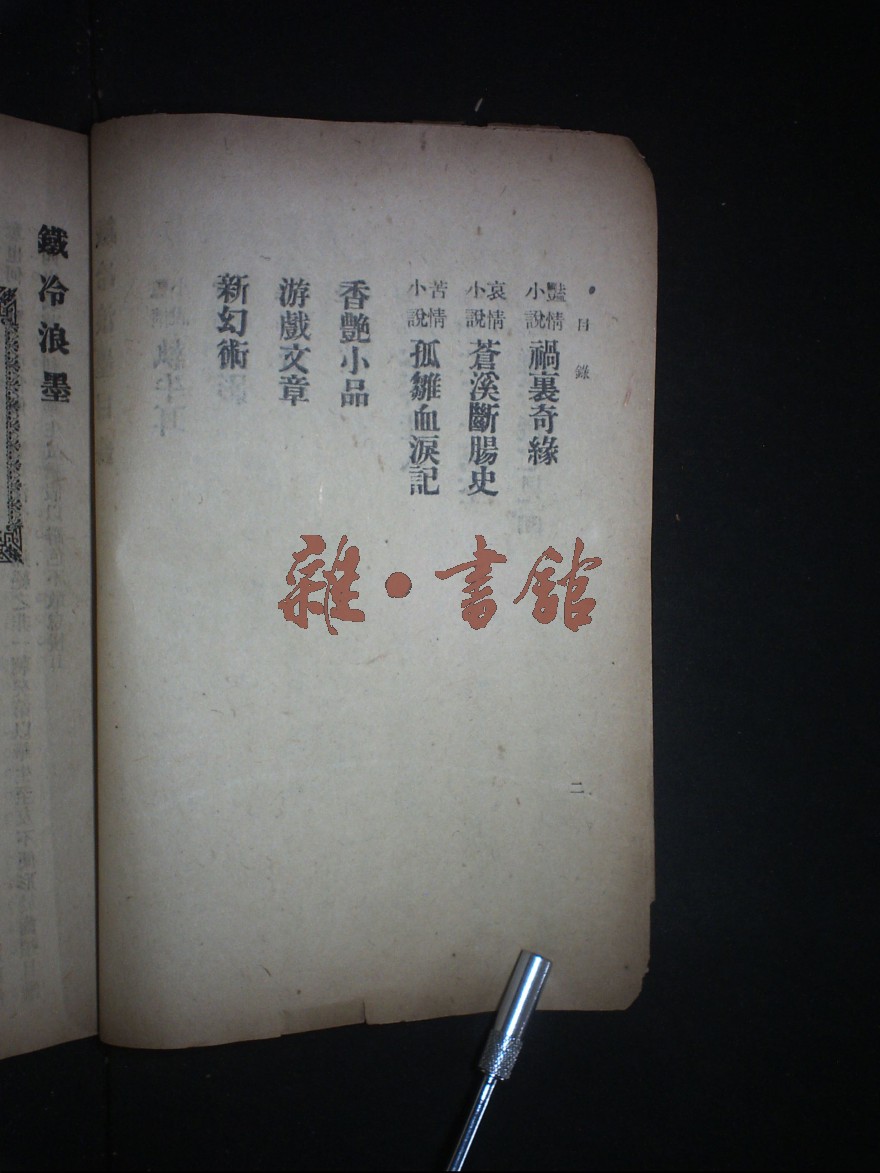 目錄
豔情小說 禍裏奇緣
哀情小說 蒼溪斷腸史
苦情小說 孤雛血淚記
香艷小品
游戲文章
新幻術
二
鐵冷浪墨
雜·書館